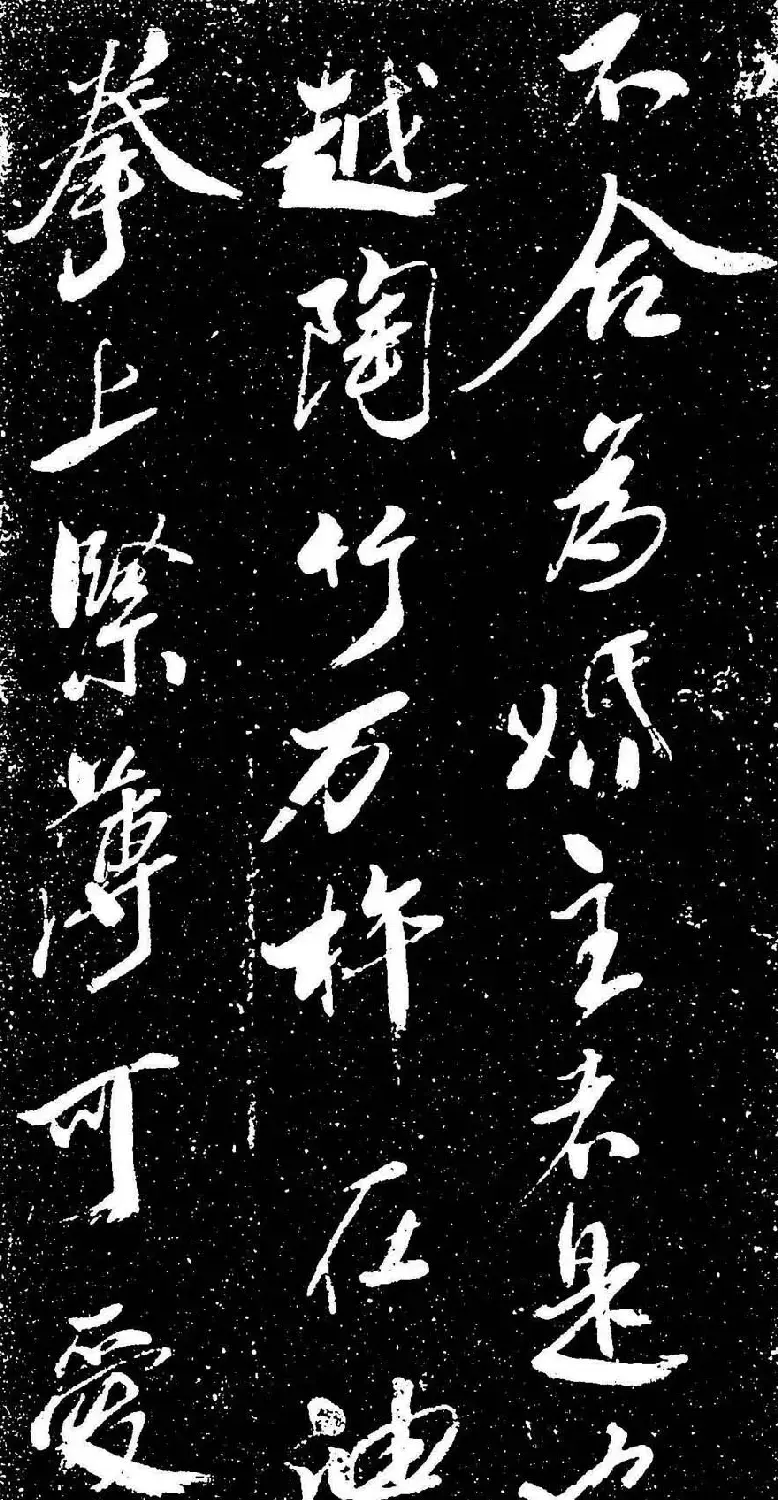 不合為婚主者是
越陶竹万杵在油
拳上緊薄可愛